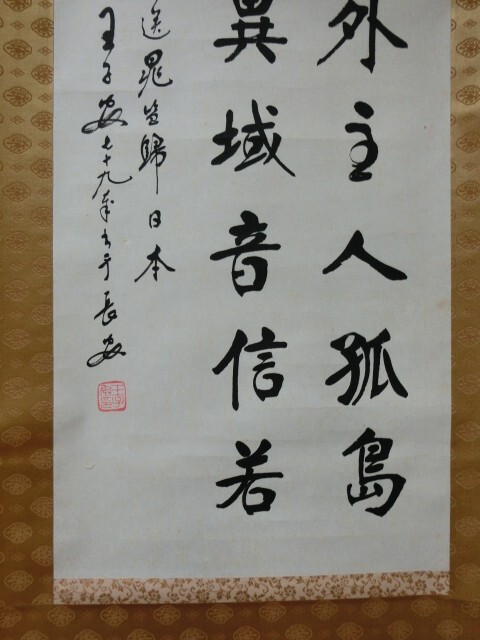 外主人孤島
異域音信若
送晁生歸日本
王子安七十九年書于長安